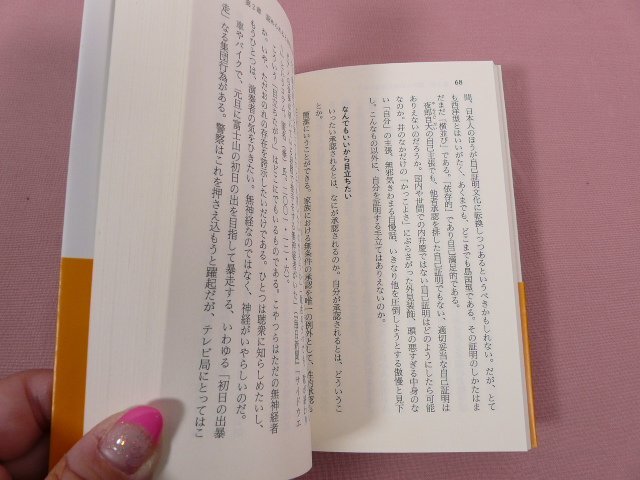 68
間、日本人のほうが自己証明文化に転換しつつあるというべきかもしれない。だが、とて
も西洋型とはいいがたく、あくまでも、どこまでも島国型である。その証明のしかたはま
だまだ「横並び」である。「依存的」であり自己満足的である。
夜郎自大の自己主張でも、他者承認を排した自己証明でもない、適切妥当な自己証明は
ありえないのだろうか。国内や世間での内弁慶ではない自己証明はどのようにしたら可能
なのか。井のなかだけの「かっこよさ」にぶらさがった外見装飾、頭の悪すぎる中身のな
い「自分」の主張、無邪気きわまる自慢話、いきなり他を圧倒しようとする傲慢と見下
し。こんなもの以外に、自分を証明する手立てはありえないのか。
なんでもいいから目立ちたい
いったい承認されるとは、なにが承認されるのか。自分が承認されるとは、どういうこ
とか。
簡潔にいうことができる。家族における無条件の承認を唯一の例外として、
こういう「自分もちたがり」はどこにでもいるものである。こやつらはただの無神経者
か。いや、ただおのれの存在を誇示したいだけである。ひとつは聴衆に知らしめたいし、
もうひとつは、演奏者の気をひきたい。無神経なのではなく、神経がいやらしいのだ。
車やバイクで、元旦に富士山の初日の出を目指して暴走する、いわゆる「初日の出暴
走」なる集団行為がある。警察はこれを押さえ込もうと躍起だが、テレビ局にとってはこ